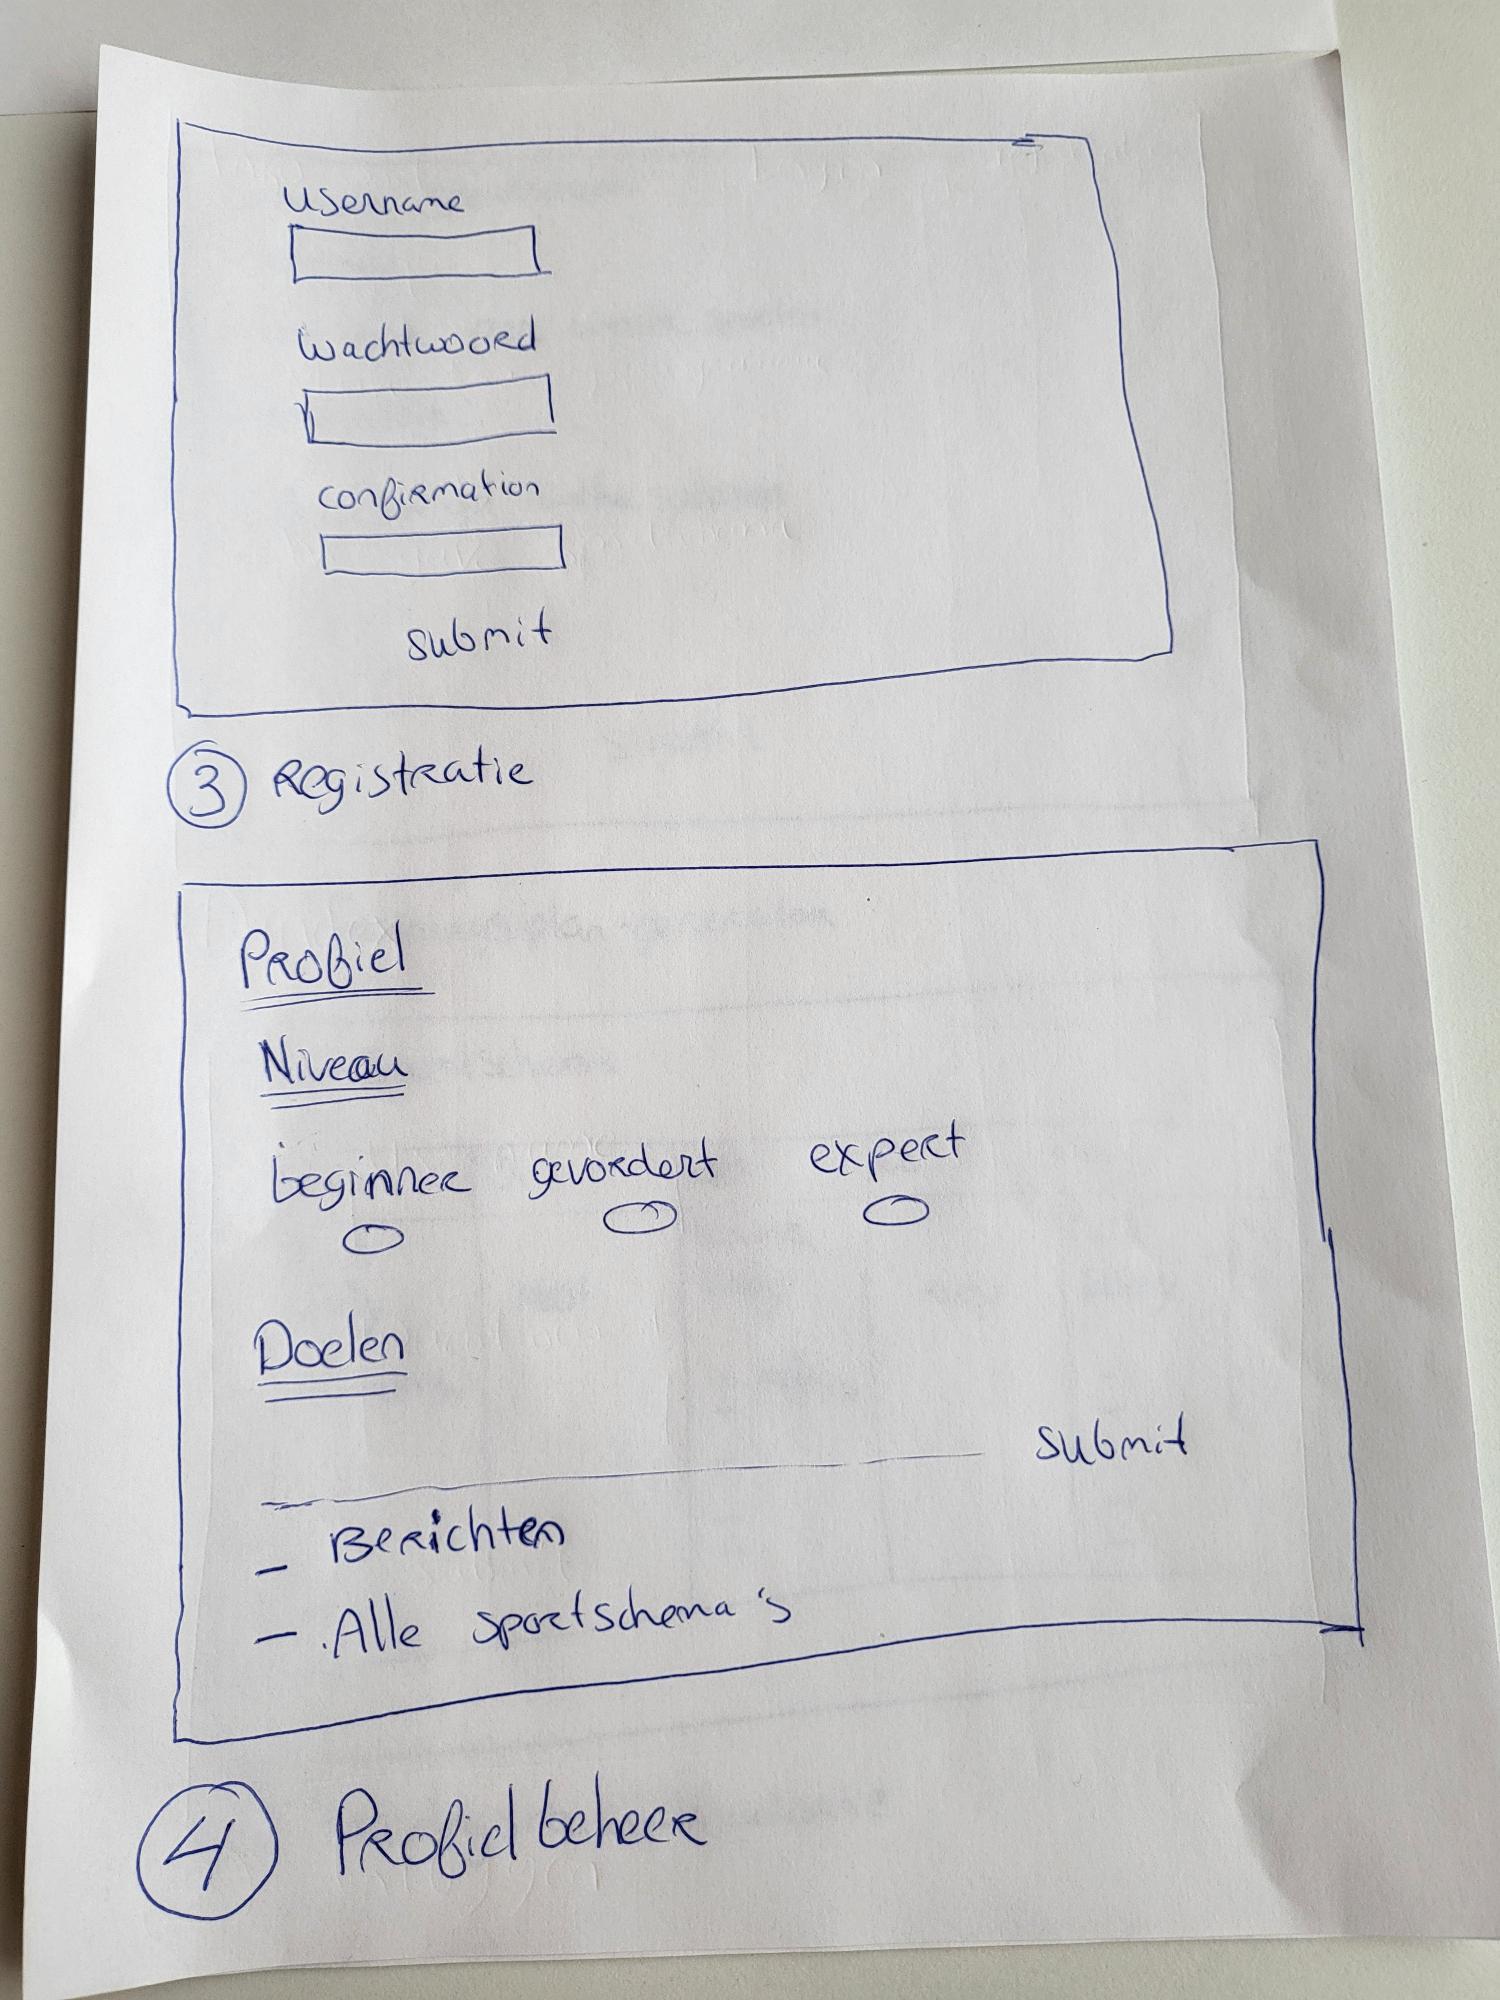 username
wachtwoord
confirmation
submit
3 Registratie
Profiel
Niveau
beginner gevordert expert
Doelen
submit
- Berichten
- Alle sportschema's
4 Profielbeheer